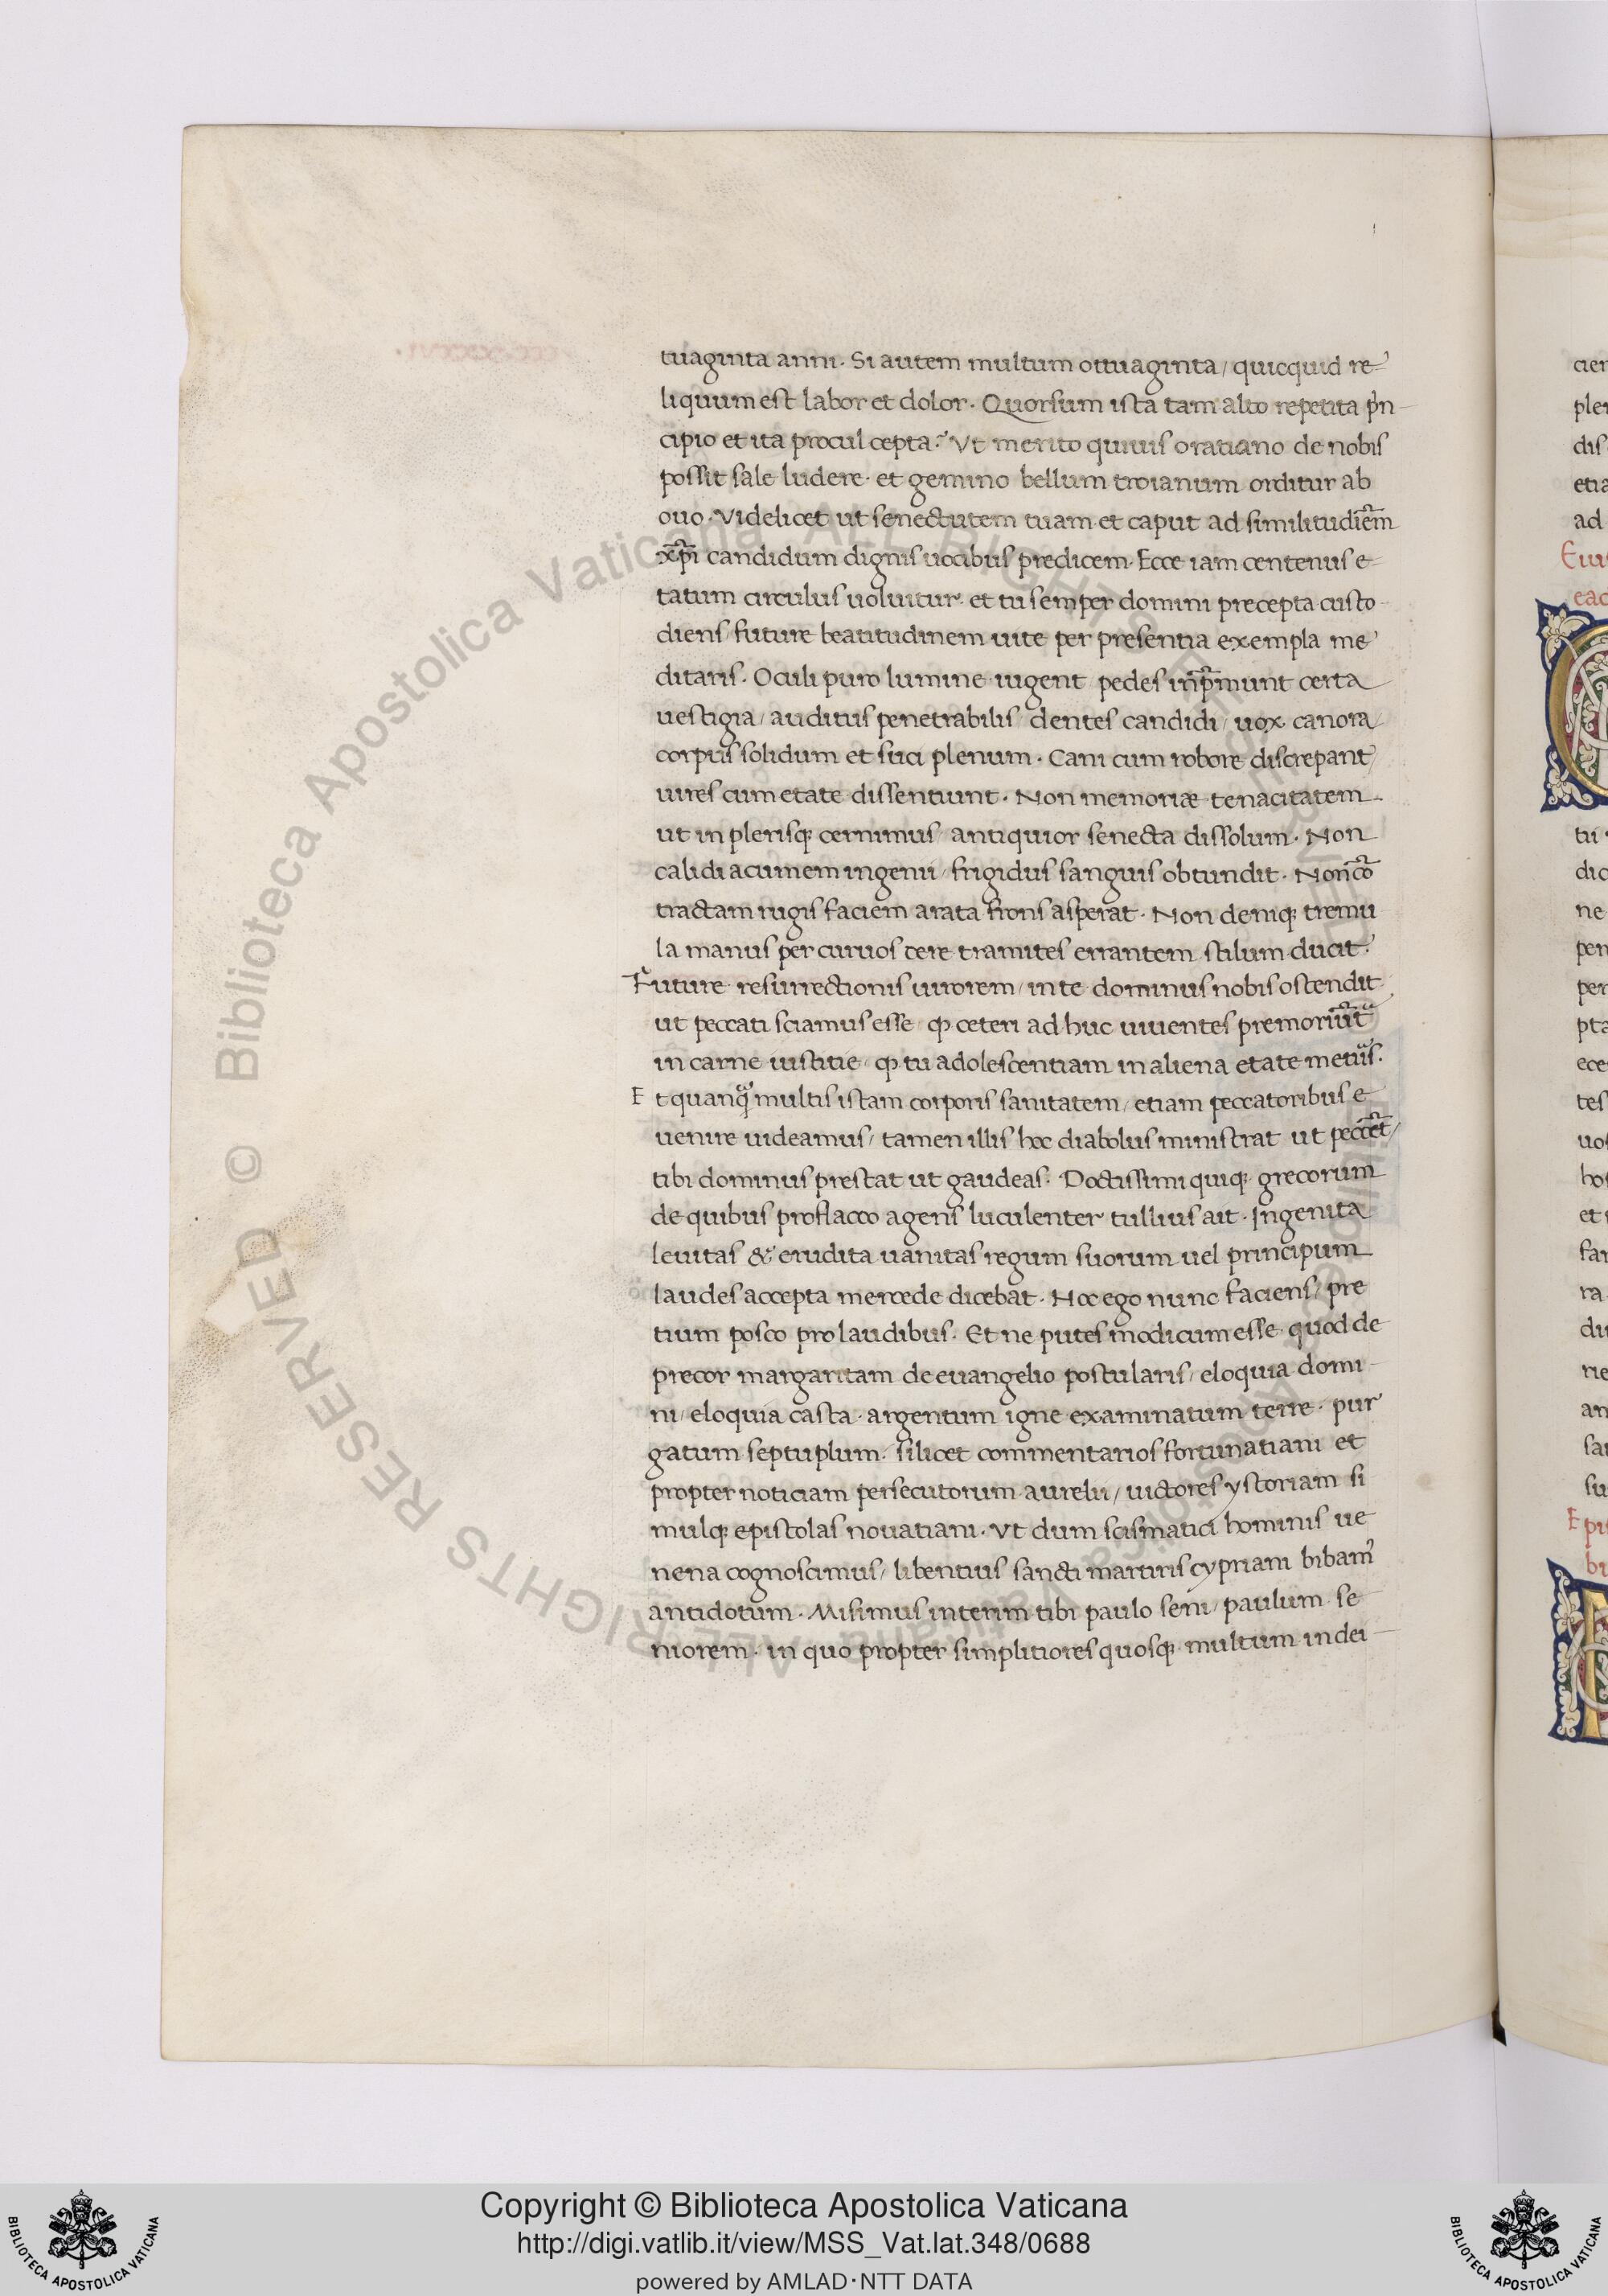 tuaginta anni. Si autem multum ottuaginta / quicquid re
liquum est labor et dolor. Quorsum ista tam alto repetita p̄n
cipio et ita procul cepta? Vt merito quiuis oratiano de nobis
possit sale ludere. et gemino bellum troianum orditur ab
ouo. Videlicet ut senectutem tuam et caput ad similitudiem̄
xp̄i candidum dignis uocibus predicem. Ecce iam centenus e
tatum circulus uoluitur. et tu semper domini precepta custo
diens / future beatitudinem uite per presentia exempla me
ditaris. Oculi puro lumine uigent pedes inp̄munt certa
uestigia / auditus penetrabilis dentes candidi / uox canora
corpus solidum et suci plenum. Cani cum robore discrepant /
uires cum etate dissentiunt. Non memoriæ tenacitatem
ut in plerisq; cernimus / antiquior senecta dissolum. Non
calidi acumem ingenii / frigidus sanguis obtundit. Non cō
tractam rugis faciem arata frons asperat. Non deniq; tremu
la manus per curuos cere tramites errantem stilum ducit.
Future resurrectionis uirorem / in te dominus nobis ostendit
ut peccati sciamus esse qp ceteri ad huc uiuentes premoriūt
in carne iustitie / qp tu adolescentiam in aliena etate metiis.
Et quanq̃ multis istam corporis sanitatem / etiam peccatoribus e
uenire uideamus / tamen illis hoc diabolus ministrat ut peccēt /
tibi dominus prestat ut gaudeas. Doctissimi quiq; grecorum
de quibus pro flacco agens luculenter tullius ait. Ingenita
leuitas & erudita uanitas regum suorum uel principum
laudes accepta mercede dicebat. Hoc ego nunc faciens / pre
tium posco pro laudibus. Et ne putes modicum esse quod de
precor margaritam de euangelio postularis / eloquia domi
ni / eloquia casta. argentum igne examinatum terre. pur
gatum septuplum. silicet commentarios fortunatiani et
propter noticiam persecutorum aurelii / uictores ystoriam si
mulq; epistolas nouatiani. Vt dum scismatici hominis ue
nena cognoscimus / libentius sancti martiris cypriani bibam'
antidotum. Misimus interim tibi paulo seni / paulum se
niorem. in quo propter simplitiores quosq; multum in dei
Copyright © Biblioteca Apostolica Vaticana
http://digi.vatlib.it/view/MSS_Vat.lat.348/0688
powered by AMLAD·NTT DATA